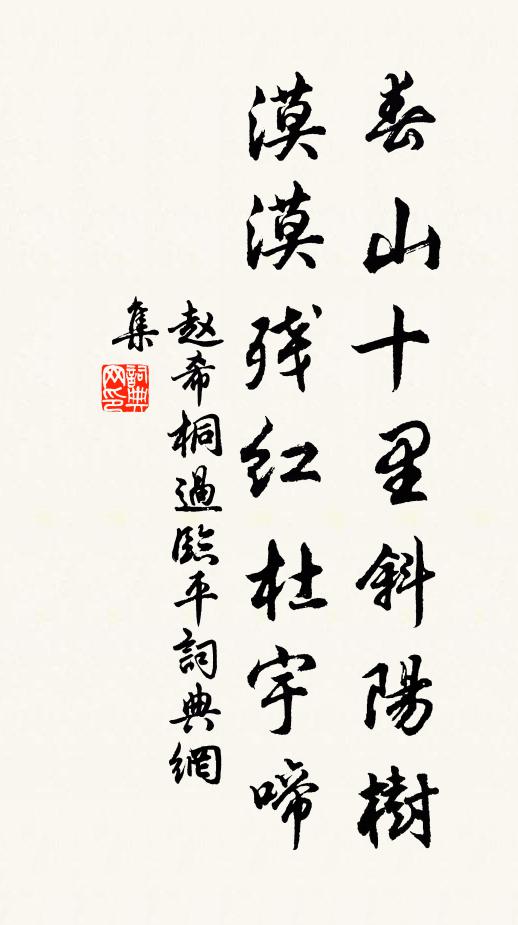 春山十里斜陽樹
漠漠残红杜宇啼
赵希桐過臨平詞典網
集
詞典网印